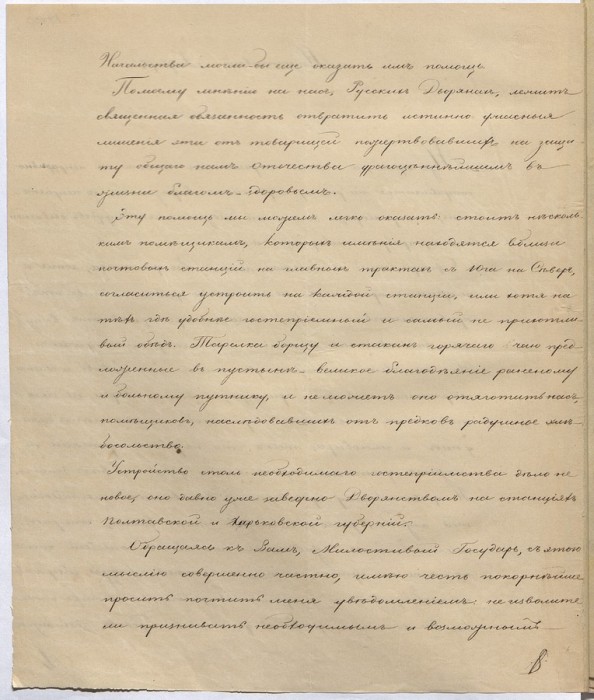 Начальства могли-бы еще оказать имъ помощь.
Помоему мнѣнію на насъ, Русскихъ Дворянахъ, лежитъ
священная обязанность отвратить истинно ужасныя
лишенія эти отъ товарищей пожертвовавшихъ на защи-
ту общаго намъ Отечества драгоцѣннѣйшимъ въ
жизни благомъ – здоровьемъ.
Эту помощь мы можемъ легко оказать: стоитъ нѣсколь-
кимъ помѣщикамъ, которыхъ имѣнія находятся вблизи
почтовыхъ станцій на главныхъ трактахъ съ Юга на Сѣверъ,
согласиться устроить на каждой станціи, или хотя на
тѣхъ гдѣ удобнѣе гостепріимный и самый не прихотли-
вый обѣдъ. Тарелка борщу и стаканъ горячаго чаю пред-
ложенные въ пустынѣ – великое благодѣяніе раненому
и больному путнику, и не можетъ оно отяготить насъ,
помѣщиковъ, наслѣдовавшихъ отъ предковъ радушное хлѣ-
босольство.
Устройство столь необходимаго гостепріимства дѣло не
новое, оно давно уже заведено Дворянствомъ на станціяхъ
Полтавской и Харьковской губерній.
Обращаясь къ Вамъ, Милостивый Государь, съ этою
мыслію совершенно частно, имѣю честь покорнѣйше
просить почтить меня увѣдомленіемъ: не изволите
ли признавать необходимымъ и возможнымъ